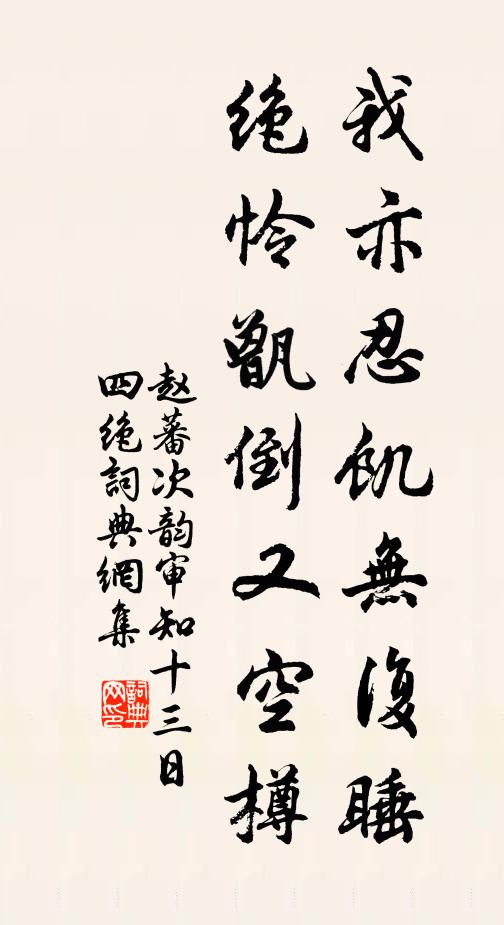 我亦忍飢無復睡
绝怜甑倒又空樽
赵蕃次韵审知十三日
四绝詞典網集
詞典网印